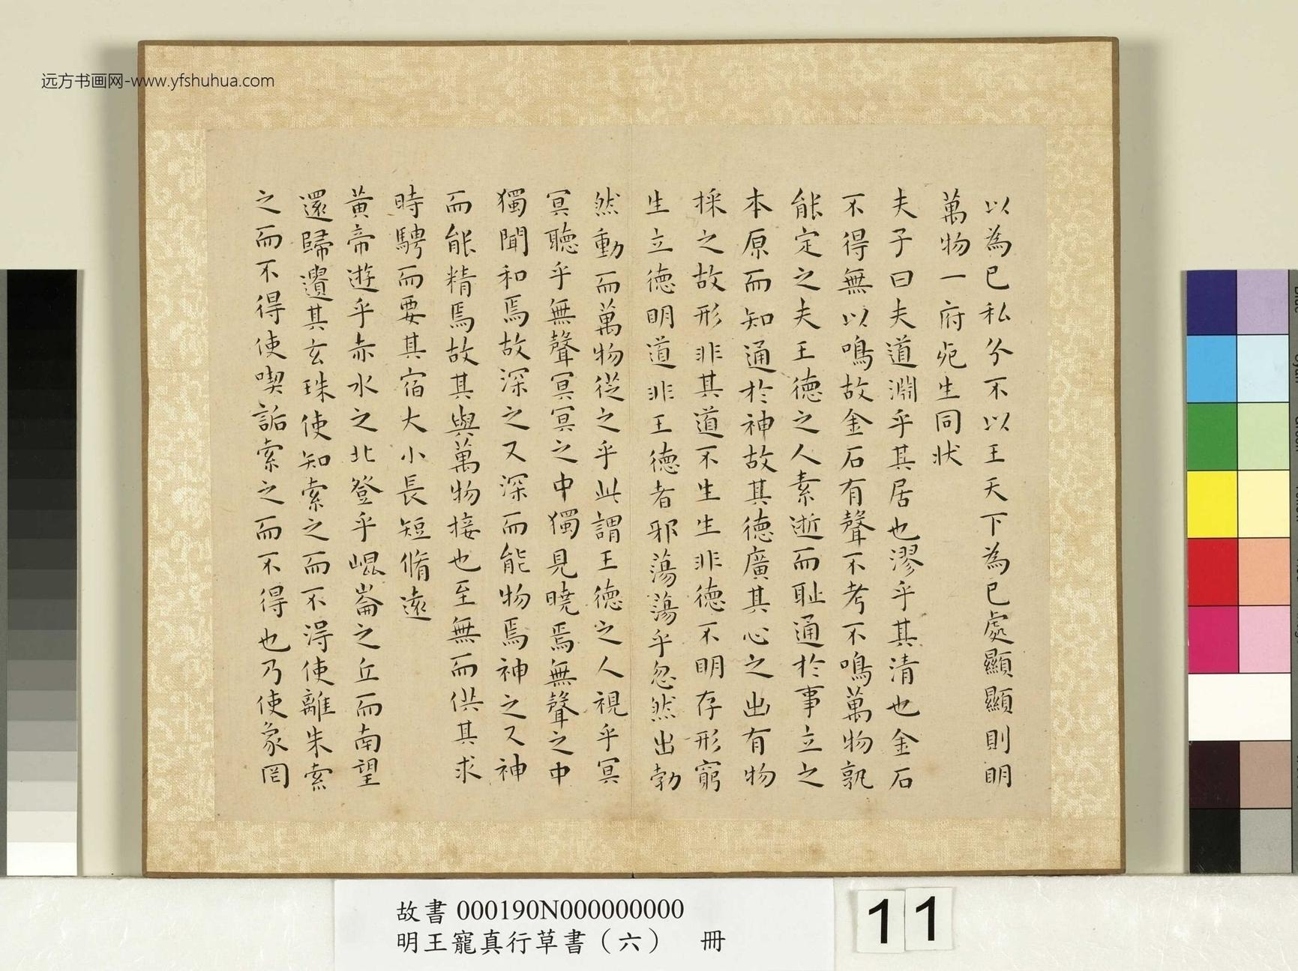 远方书画网-www.yfshuhua.com
以為已私分不以王天下為已處顯顯則明
萬物一府死生同狀
夫子曰夫道淵乎其居也漻乎其清也金石
不得無以鳴故金石有聲不考不鳴萬物孰
能定之夫王德之人素逝而耻通於事立之
本原而知通於神故其德廣其心之出有物
採之故形非其道不生生非德不明存形窮
生立德明道非王德者邪蕩蕩乎忽然出勃
然動而萬物從之乎此謂王德之人視乎冥
冥聽乎無聲冥冥之中獨見曉焉無聲之中
獨聞和焉故深之又深而能物焉神之又神
而能精焉故其與萬物接也至無而供其求
時騁而要其宿大小長短脩遠
黃帝遊乎赤水之北登乎崐崙之丘而南望
還歸遺其玄珠使知索之而不得使離朱索
之而不得使喫詬索之而不得也乃使象罔
故書 000190N000000000
明王寵真行草書（六） 冊
11